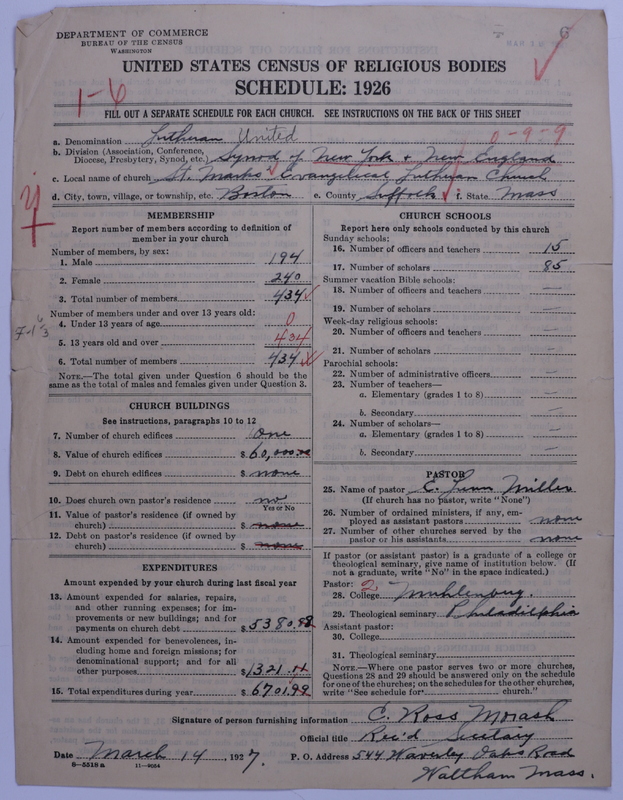 DEPARTMENT OF COMMERCE
BUREAU OF THE CENSUS
WASHINGTON
6
UNITED STATES CENSUS OF RELIGIOUS BODIES
SCHEDULE: 1926
1-6
FILL OUT A SEPARATE SCHEDULE FOR EACH CHURCH. SEE INSTRUCTIONS ON THE BACK OF THIS SHEET
0-9-9
a. Denomination Lutheran United
b. Division (Association, Conference, Diocese, Presbytery, Synod, etc.) Synod of New York & New England
c. Local name of church St. Marks Evangelical Lutheran Church
d. City, town, village, or township, etc. Boston e. County Suffolk f. State Mass
MEMBERSHIP
Report number of members according to definition of
member in your church
Number of members, by sex:
1. Male 194
2. Female 240
3. Total number of members 434
Number of members under and over 13 years old:
4. Under 13 years of age 0
5. 13 years old and over 434
6. Total number of members 434
NOTE.—The total given under Question 6 should be
same as the total of males and females given under Question 3.
CHURCH BUILDINGS
See instructions, paragraphs 10 to 12
7. Number of church edifices One
8. Value of church edifices $60,000.00
9. Debt on church edifices $ none
10. Does church own pastor's residence no
Yes or No
11. Value of pastor's residence (if owned by
church) $ none
12. Debt on pastor's residence (if owned by
church) $ none
EXPENDITURES
Amount expended by your church during last fiscal year
13. Amount expended for salaries, repairs,
and other running expenses; for im-
provements or new buildings; and for
payments on church debt $5380.98
14. Amount expended for benevolences, in-
cluding home and foreign missions; for
denominational support; and for all
other purposes $1321.
15. Total expenditures during year $6701.99
CHURCH SCHOOLS
Report here only schools conducted by this church
Sunday schools:
16. Number of officers and teachers 15
17. Number of scholars 85
Summer vacation Bible schools:
18. Number of officers and teachers —
19. Number of scholars —
Week-day religious schools:
20. Number of officers and teachers —
21. Number of scholars —
Parochial schools:
22. Number of administrative officers —
23. Number of teachers—
a. Elementary (grades 1 to 8) —
b. Secondary —
24. Number of scholars—
a. Elementary (grades 1 to 8) —
b. Secondary —
PASTOR
25. Name of pastor E. Miller
(If church has no pastor, write "None")
26. Number of ordained ministers, if any, em-
ployed as assistant pastors none
27. Number of other churches served by the
pastor or his assistants none
If pastor (or assistant pastor) is a graduate of a college or
theological seminary, give name of institution below. (If
not a graduate, write "No" in the space indicated.)
Pastor: 2
28. College Muhlenburg.
29. Theological seminary Philadelphia
Assistant pastor:
30. College
31. Theological seminary
NOTE.—Where one pastor serves two or more churches,
Questions 28 and 29 should be answered only on the schedule
for one of the churches; on the schedules for the other churches,
write "See schedule for church."
Signature of person furnishing information C. Ross Morash
Official title Rec'd Secretary
Date March 14, 1927.
P. O. Address 544 Waverley Oaks Road
Waltham Mass.
8—5519 a 11—9054